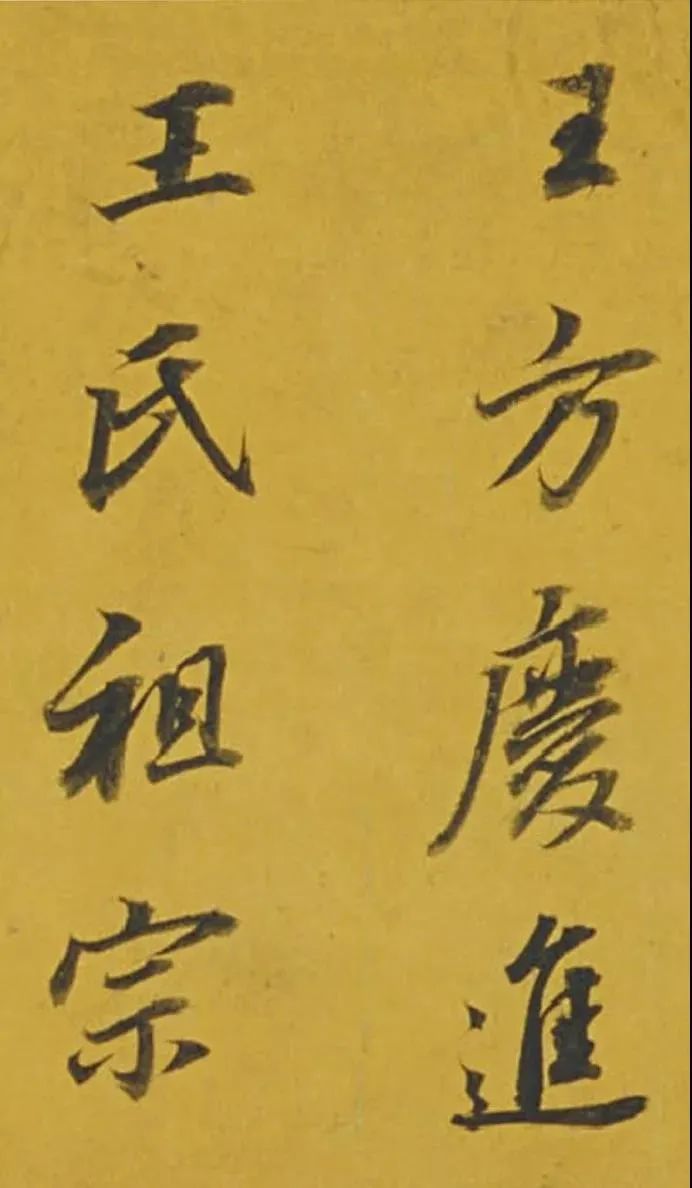 王方慶進
王氏祖宗